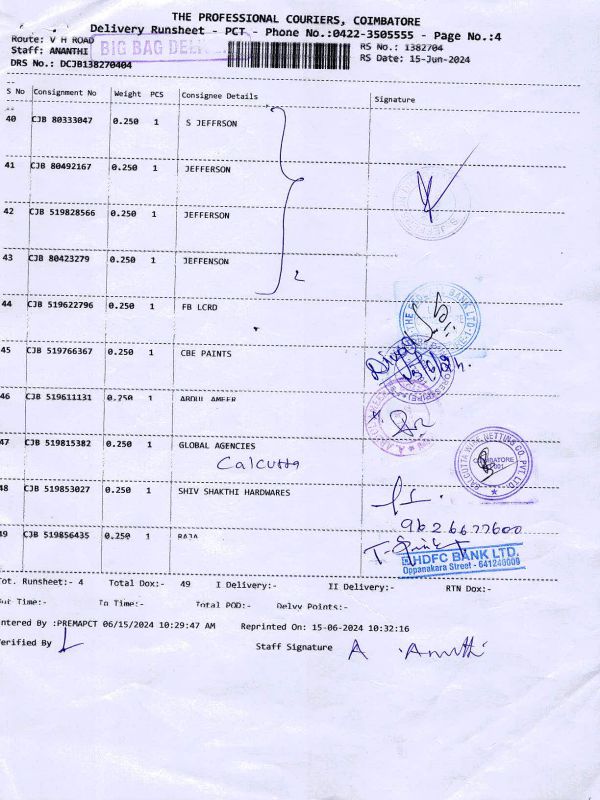 THE PROFESSIONAL COURIERS, COIMBATORE
Delivery Runsheet - PCT - Phone No.:0422-3505555 - Page No.:4
Route: V H ROAD
BIG BAG
RS No.: 1382704
Staff: ANANTHI
RS Date: 15-Jun-2024
DRS No.: DCJB138270404
S No Consignment No Weight PCS Consignee Details Signature
40 CJB 80333047 0.250 1 S JEFFRSON
41 CJB 80492167 0.250 1 JEFFERSON
42 CJB 519828566 0.250 1 JEFFERSON
43 CJB 80423279 0.250 1 JEFFENSON
44 CJB 519622796 0.250 1 FB LCRD
45 CJB 519766367 0.250 1 CBE PAINTS
46 CJB 519611131 0.250 1 ABDUL AMEER
47 CJB 519815382 0.250 1 GLOBAL AGENCIES
Calcutta
CALCUTTA WIRE NETTING CO. PVT. LTD.
48 CJB 519853027 0.250 1 SHIV SHAKTHI HARDWARES
9626677600
49 CJB 519856435 0.250 1 RAJA
HDFC BANK LTD.
Oppanakara Street - 641240009
Tot. Runsheet:- 4 Total Dox:- 49 I Delivery:- II Delivery:- RTN Dox:-
Out Time:- In Time:- Total POD:- Delvy Points:-
Entered By :PREMAPCT 06/15/2024 10:29:47 AM Reprinted On: 15-06-2024 10:32:16
Verified By Staff Signature A